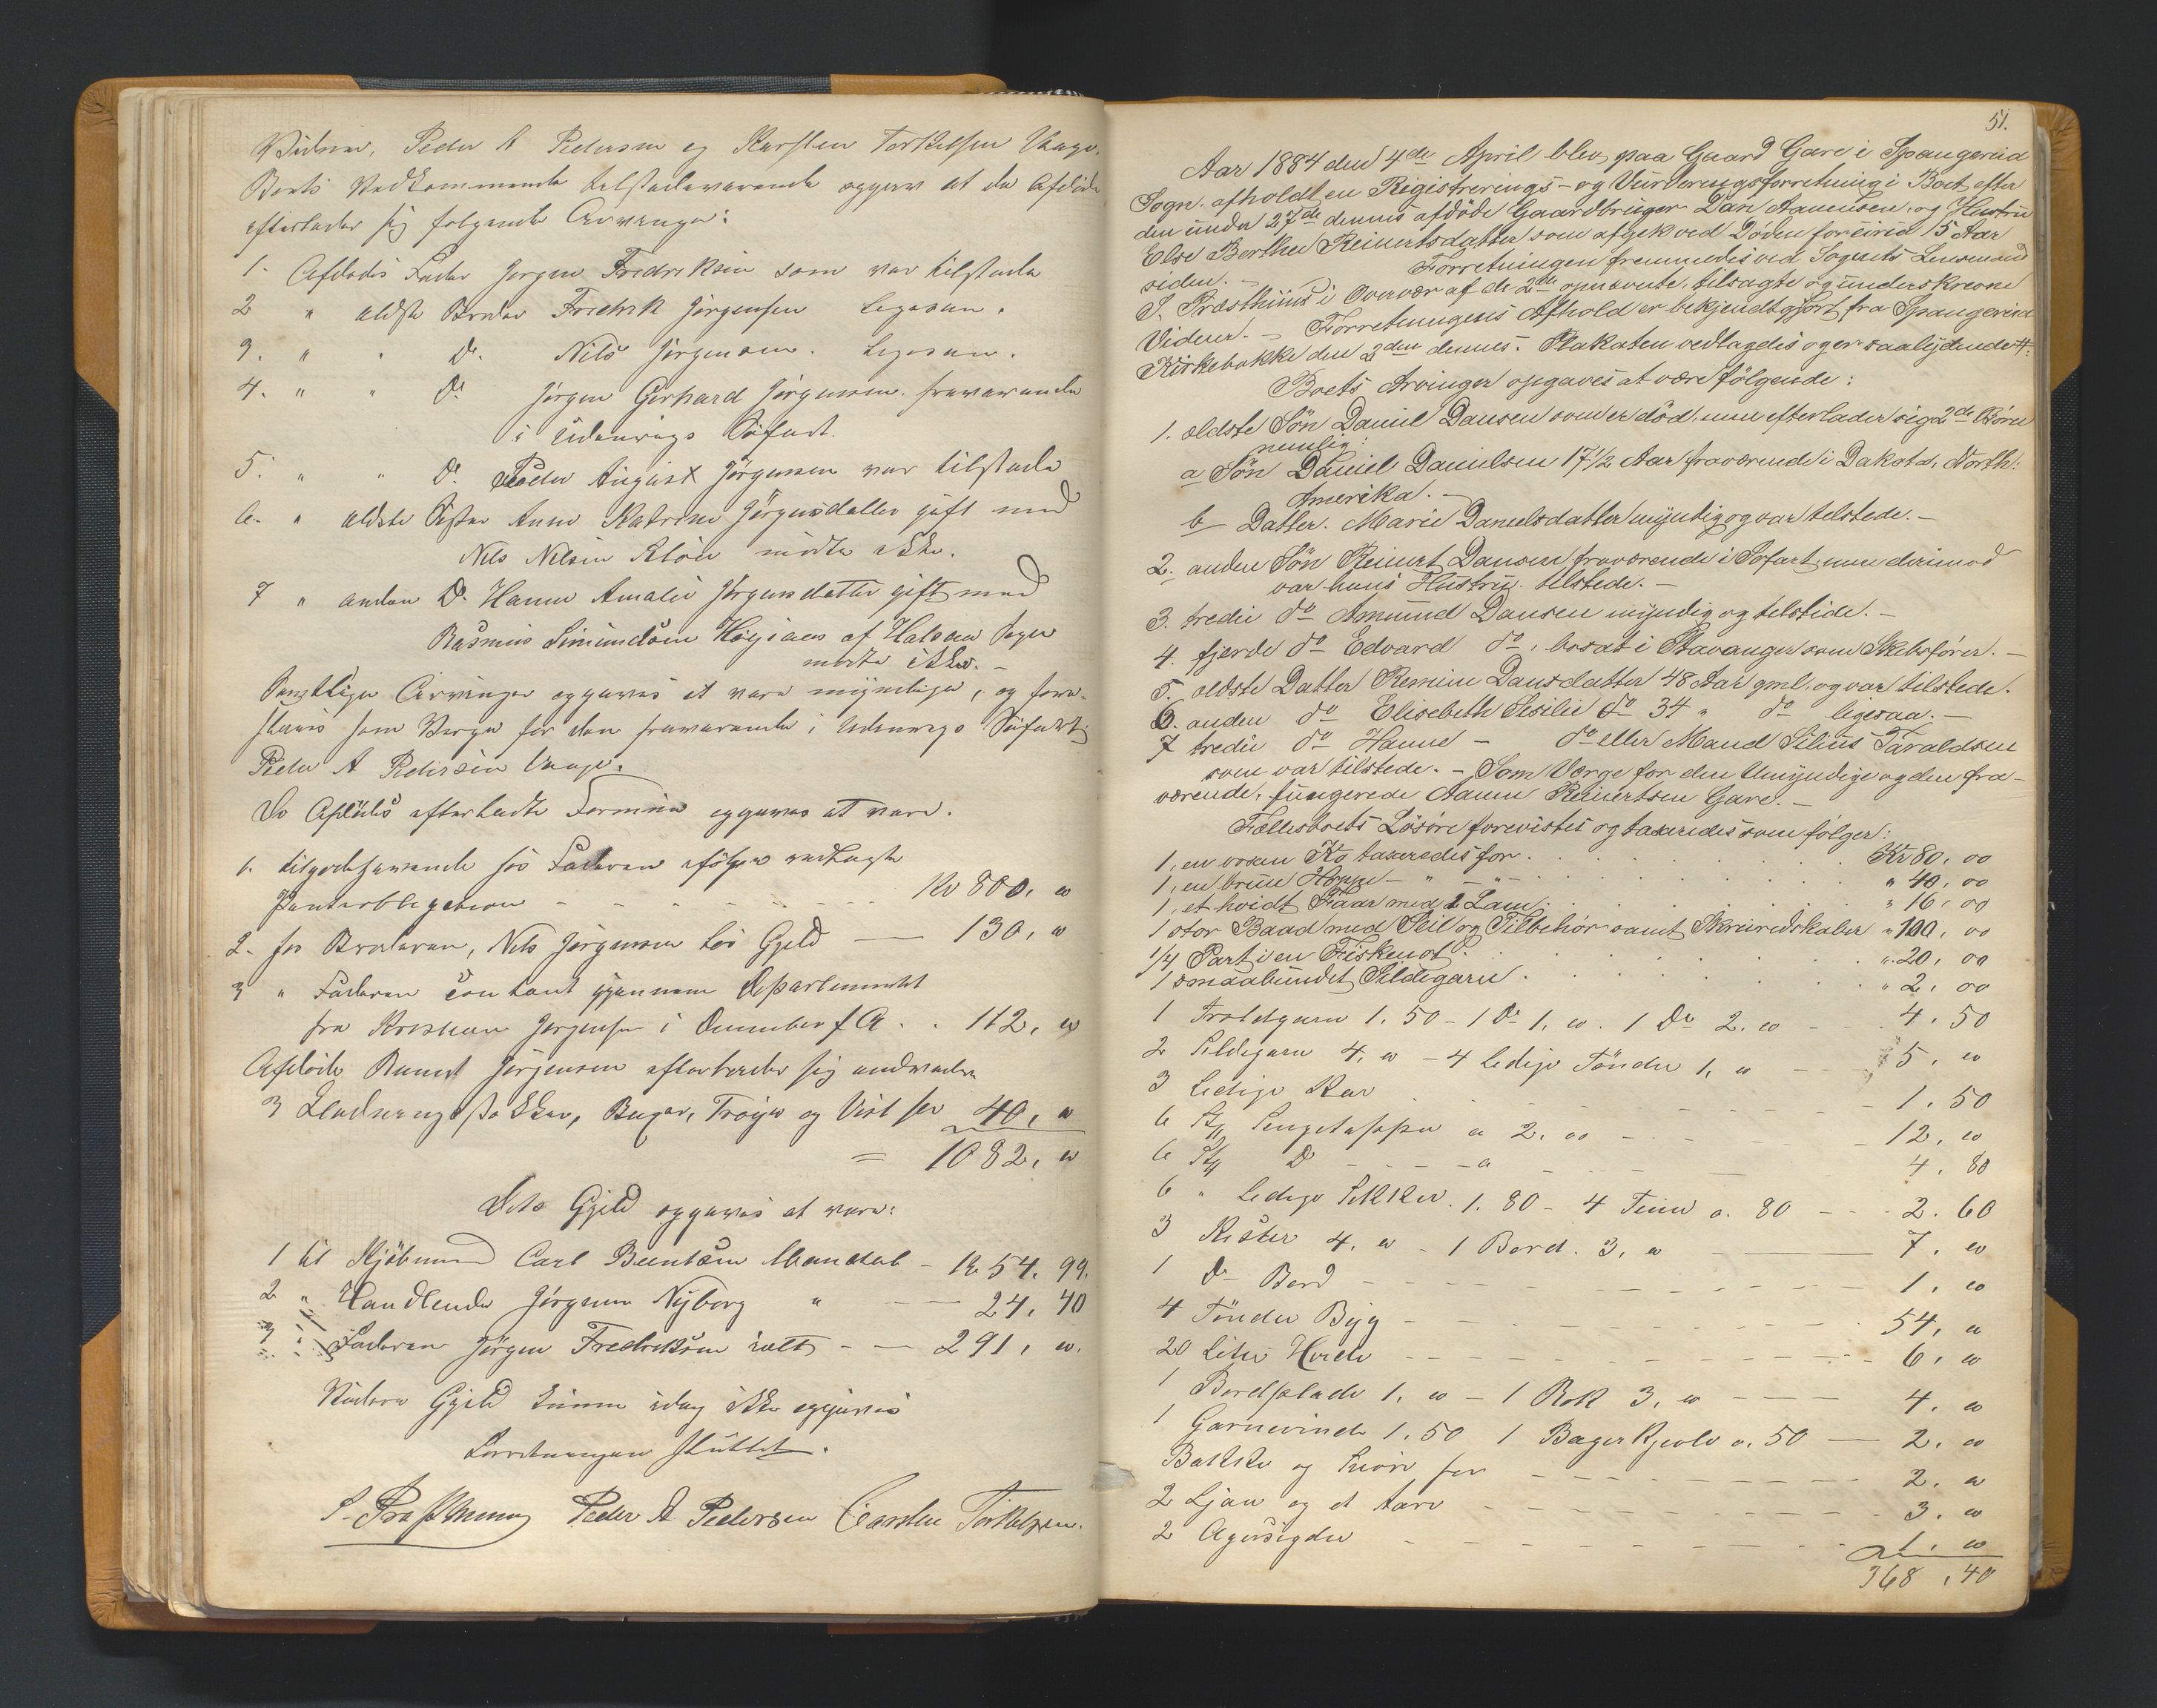 Vidner, Peder A Pedersen og Karsten Torkelsen Vaage.
Boets Vedkommende tilstedeværende opgav at da Afdøde
efterlader sig følgende Arvinger:
1. Afdødes Fader Jørgen Fredriksen som var tilstede
2 " ældste Broder Fredrik Jørgensen ligesaa.
3. " " Do. Nils Jørgensen. ligesaa.
4. " " Do Jørgen Gerhard Jørgensen. fraværende
i Udenrigs Søfart.
5. " " Do. Peder August Jørgensen var tilstede
6. " ældste Søster Anne Katrine Jørgensdatter gift med
Nils Nilsen mødte ikke.
7 " anden Do. Hanne Amalie Jørgensdatter gift med
Rasmus Simundsen af Halsaa Sogn
mødte ikke. -
Samtlige Arvinger opgaves at være myndige, og fore-
som Verge for den fraværende i Udenrigs Søfart
Peder A Pedersen Vaage.
Do Afdødes efterladte Formue opgaves at være.
1. tilgodehavende hos Faderen ifølge vedlagte
Panteobligation - - - - - - Kr 800, 00
2. hos Broderen, Nils Jørgensen løs Gjeld — 130, 00
3 " Faderen contant gjennem Departementet
fra Jørgensen i December f A. . 112, 00
Afdøde Jørgensen efterlader sig endvidere
3 , Buxer, Trøyer og Vest for 40, 00
= 1082, 00
Dets Gjeld opgaves at være:
1 til Kjøbmand Carl Beentsen Mandal - Kr 54. 99.
2 " Handlende Jørgensen Nyborg " — 24, 40
3 " Faderen Jørgen Fredriksen ialt - — 291, 00.
Videre Gjeld kunne idag ikke opgives
Forretningen sluttet.
S. Præsthuus Peder A Pedersen Carsten Torkelsen.
51.
Aar 1884 den 4de April blev paa Gaard Gare i Spangereid
Sogn. afholdt en Registrerings- og Vurderingsforretning i Boet efter
den under 27de dennes afdöde Gaardbruger Dan Aanensen. og Hustru
Else Berthe Reinertsdatter som afgik ved Döden for circa 15 Aar
siden. - Forretningen fremmedes ved Sognets Lensmand
S. Præsthuus i Overvær af de 2de opnævnte, tilsagte og underskrevne
Vidner. - Forretningens Afhold er bekjendtgjort fra Spangereid
Kirkebakke den 3den dennes. Plakaten vedlagdes og er saalydende #:
Boets Arvinger opgaves at være fölgende:
1. ældste Sön Daniel Dansen som er död, men efterlader sig 2de Börn
nemlig:
a Sön Daniel Danielsen 17 1/2 Aar fraværende i Dakota, North:
Amerika. -
b Datter. Marie Danielsdatter myndig og var tilstede. -
2. anden Sön Reinert Dansen fraværende i Sofart, men derimod
var hans Hustru. tilstede. -
3. tredie do Amund Dansen myndig og tilstede. -
4. fjerde do Edvard do, bosat i Stavanger som Skibsförer. -
5. ældste Datter Remine Dansdatter 48 Aar gml, og var tilstede.
6. anden do Elisebeth Sesilie do 34 " do ligesaa. -
7 tredie do Hanne - do eller Mand Silius Taraldsen
som var tilstede. - Som Værge for den Umyndige og den fra-
værende, fungerede Aanen Reinertsen Gare. -
Fællesboets Lösöre forevistes og taxeredes som fölger:
1, en voxen Ko taxeredes for . . . . . Kr 80, 00
1, en brun Hoppe - " - " - . . . . " 40, 00
1, et hvidt Faar med 2 Lam . . . . . " 16, 00
1 stor Baad med Seil og Tilbehör samt Skreiredskaber " 100, 00
1/4 Part i en Fiskenot . . . . . " 20, 00
1 smaabundet Sildegarn . . . . . " 2, 00
1 Troldgarn 1. 50 - 1 Do 1, 00. 1 Do 2. 00 - - 4. 50
2 Sildegarn 4, 00 - 4 ledige Tönder 1, 00 - - 5, 00
3 ledige Kar - - - - - - 1. 50
6 Stk Sengetæpper a 2, 00 - - - - 12, 00
6 Stk Do - - - a - - - - 4. 80
6 " ledige Sekker. 1. 80 - 4 Tiner a. 80 - - 2. 60
3 Kister 4, 00 - 1 Bord. 3, 00 - — 7, 00
1 Do Bord - - - - - - 1, 00
4 Tönder Byg - - - - - - 54, 00
20 Liter Hvede - - - - - - 6, 00
1 Bordplade 1, 00 - 1 Rok 3, 00 - — 4, 00
1 Garnvinde 1. 50 1 Bagerkjevle 0. 50 — 2, 00
Balkke og for - - - - - - 2. 00
2 Ljaa og et - - - - - - 3. 00
2 Agersigder - - - - - - 1, 00
368, 40